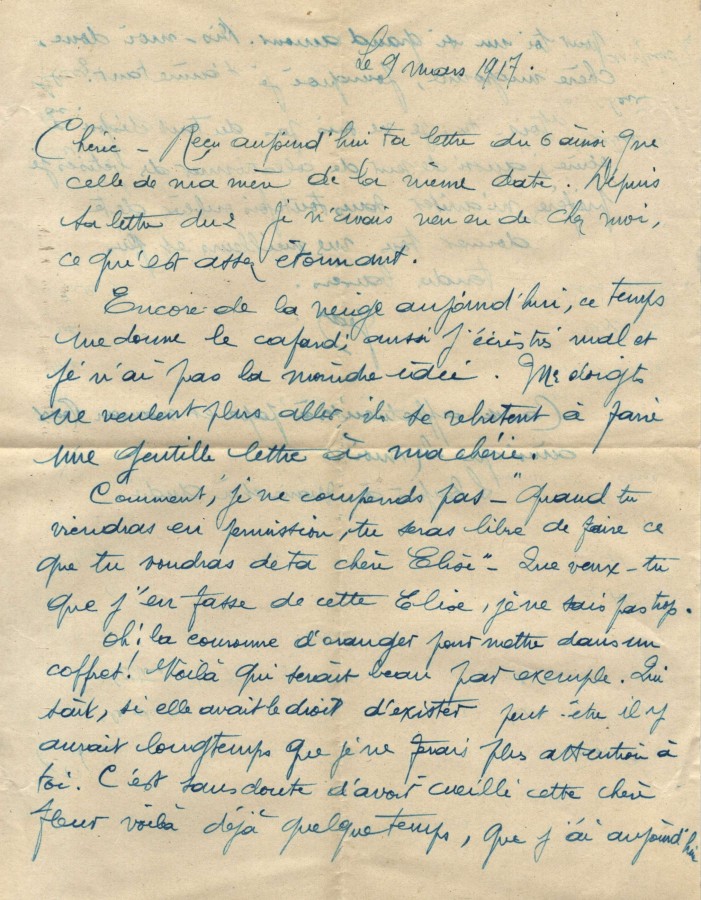 Le 9 mars 1917.
Chérie – Reçu aujourd'hui ta lettre du 6 ainsi que
celle de ma mère de la même date. Depuis
ta lettre du 2 je n'avais rien eu de chez moi,
ce qu'est assez étonnant.
Encore de la neige aujourd'hui, ce temps
me donne le cafard, aussi j'écris très mal et
je n'ai pas la moindre idée. Mes doigts
ne veulent plus aller ils se rebutent à faire
une gentille lettre à ma chérie.
Comment, je ne comprends pas – "Quand tu
viendras en permission, tu seras libre de faire ce
que tu voudras de ta chère Elise" – Que veux-tu
que j'en fasse de cette Elise, je ne sais pas trop.
Oh! la couronne d'oranger pour mettre dans un
coffret! Voilà qui serait beau par exemple. Qui
sait, si elle avait le droit d'exister peut-être il y
aurait longtemps que je ne ferais plus attention à
toi. C'est sans doute d'avoir cueilli cette chère
fleur voilà déjà quelque temps, que j'ai aujourd'hui